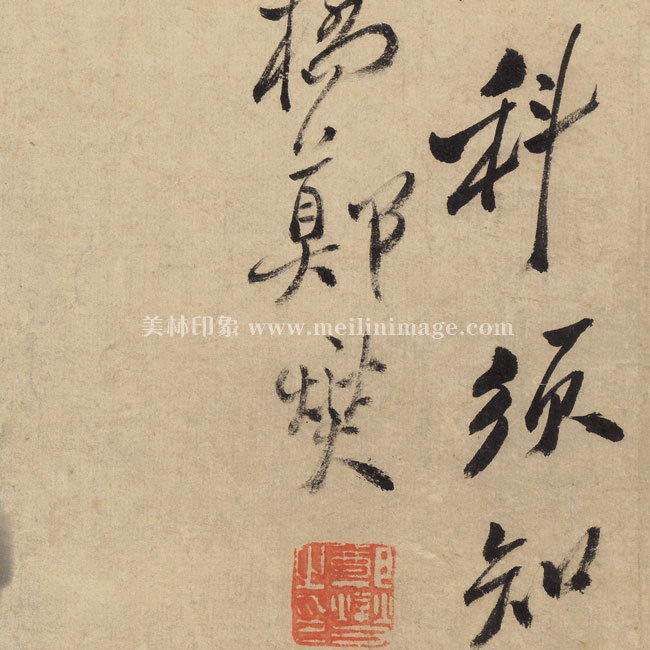 科須知
橋鄭燮
美林印象 www.meilinimage.com